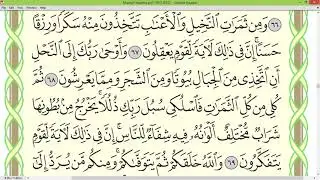 ٦٦ وَمِن ثَمَرَٰتِ ٱلنَّخِيلِ وَٱلْأَعْنَٰبِ تَتَّخِذُونَ مِنْهُ سَكَرًا وَرِزْقًا
حَسَنًا ۗ إِنَّ فِى ذَٰلِكَ لَءَايَةً لِّقَوْمٍ يَعْقِلُونَ ٦٧ وَأَوْحَىٰ رَبُّكَ إِلَى ٱلنَّحْلِ
أَنِ ٱتَّخِذِى مِنَ ٱلْجِبَالِ بُيُوتًا وَمِنَ ٱلشَّجَرِ وَمِمَّا يَعْرِشُونَ ٦٨ ثُمَّ
كُلِى مِن كُلِّ ٱلثَّمَرَٰتِ فَٱسْلُكِى سُبُلَ رَبِّكِ ذُلُلًا ۚ يَخْرُجُ مِنۢ بُطُونِهَا
شَرَابٌ مُّخْتَلِفٌ أَلْوَٰنُهُۥ فِيهِ شِفَآءٌ لِّلنَّاسِ ۗ إِنَّ فِى ذَٰلِكَ لَءَايَةً لِّقَوْمٍ
يَتَفَكَّرُونَ ٦٩ وَٱللَّهُ خَلَقَكُمْ ثُمَّ يَتَوَفَّىٰكُمْ ۚ وَمِنكُم مَّن يُرَدُّ إِلَىٰٓ